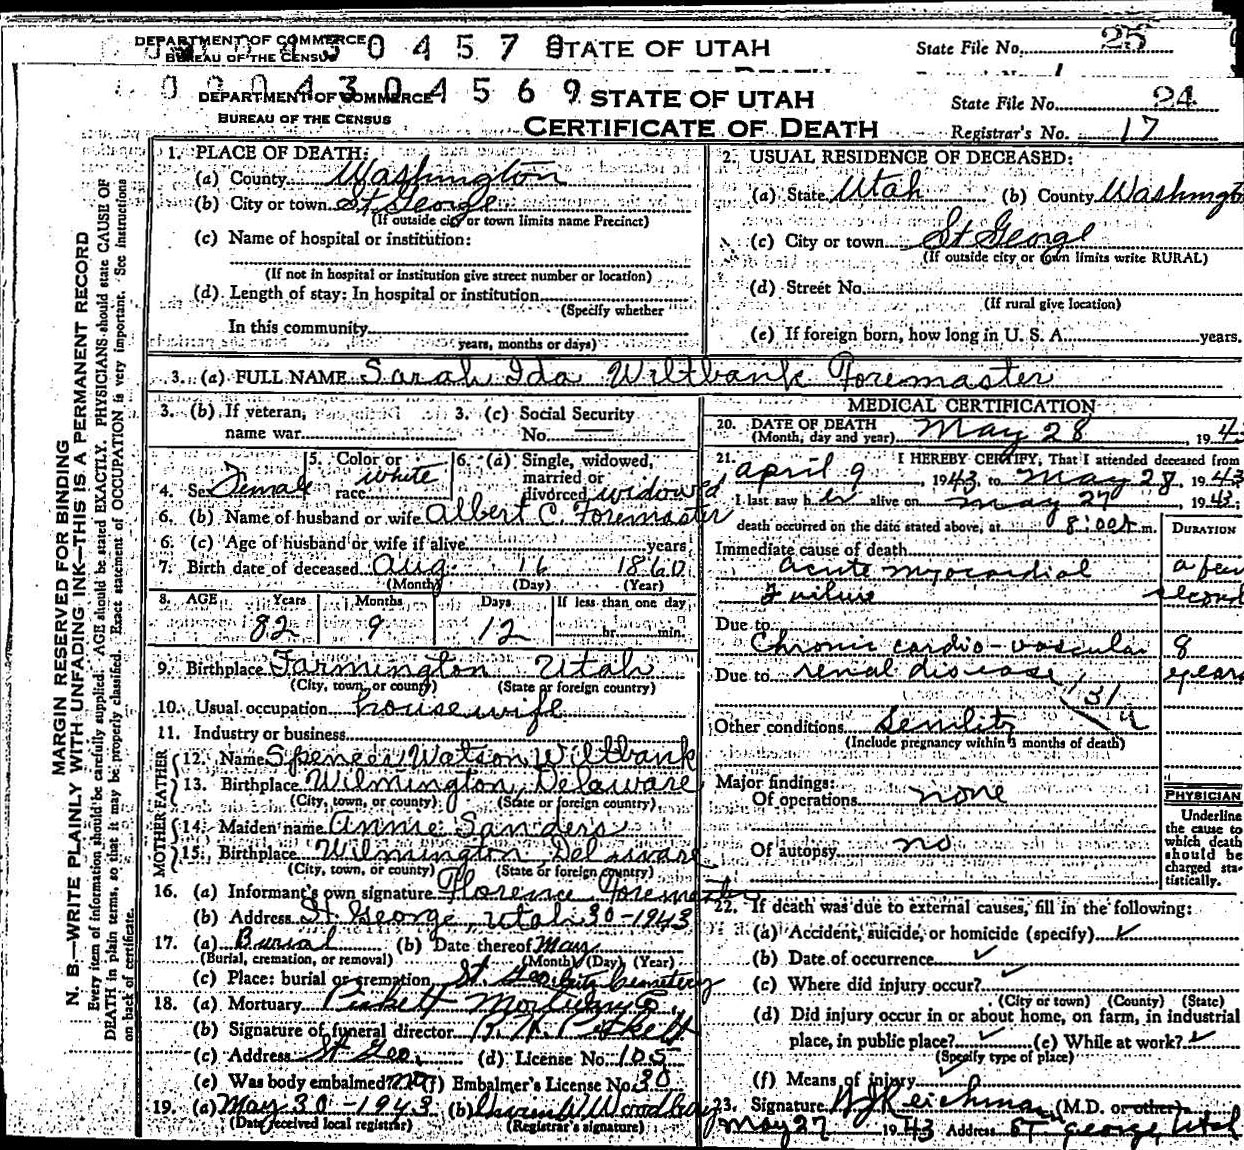 DEPARTMENT OF COMMERCE
BUREAU OF THE CENSUS
0 4 3 0 4 5 7 8 STATE OF UTAH
State File No. 25
0 4 3 0 4 5 6 9
DEPARTMENT OF COMMERCE
BUREAU OF THE CENSUS
STATE OF UTAH
CERTIFICATE OF DEATH
State File No. 24
Registrar's No. 17
MARGIN RESERVED FOR BINDING
N. B.—WRITE PLAINLY WITH UNFADING INK—THIS IS A PERMANENT RECORD
Every item of information should be carefully supplied. AGE should be stated EXACTLY. PHYSICIANS should state CAUSE OF
DEATH in plain terms, so that it may be properly classified. Exact statement of OCCUPATION is very important. See instructions
on back of certificate.
1. PLACE OF DEATH:
(a) County Washington
(b) City or town St George
(If outside city or town limits name Precinct)
(c) Name of hospital or institution:
(If not in hospital or institution give street number or location)
(d) Length of stay: In hospital or institution
(Specify whether
In this community
years, months or days)
2. USUAL RESIDENCE OF DECEASED:
(a) State Utah (b) County Washingt
(c) City or town St George
(If outside city or town limits write RURAL)
(d) Street No.
(If rural give location)
(e) If foreign born, how long in U. S. A. years.
3. (a) FULL NAME Sarah Ida Wiltbank Foremaster
3. (b) If veteran,
name war
3. (c) Social Security
No.
4. Sex Female
5. Color or
race white
6. (a) Single, widowed,
married or
divorced widowed
6. (b) Name of husband or wife Albert C. Foremaster
6. (c) Age of husband or wife if alive years
7. Birth date of deceased Aug. 16 1860
(Month) (Day) (Year)
8. AGE Years Months Days If less than one day
82 9 12 hr. min.
9. Birthplace Farmington Utah
(City, town, or county) (State or foreign country)
10. Usual occupation housewife
11. Industry or business
FATHER
12. Name Watson Wiltbank
13. Birthplace Wilmington, Delaware
(City, town, or county) (State or foreign country)
MOTHER
14. Maiden name Annie Sanders
15. Birthplace Wilmington Delaware
(City, town, or county) (State or foreign country)
16. (a) Informant's own signature Florence Foremaster
(b) Address St George, Utah 30-1943
17. (a) Burial (b) Date thereof May
(Burial, cremation, or removal) (Month) (Day) (Year)
(c) Place: burial or cremation St. Geo. City Cemetery
18. (a) Mortuary Pickett Mortuary
(b) Signature of funeral director Pickett
(c) Address St Geo. (d) License No. 105
(e) Was body embalmed? no (f) Embalmer's License No. 30
19. (a) May 30-1943 (b) Woodbury
(Date received local registrar) (Registrar's signature)
MEDICAL CERTIFICATION
20. DATE OF DEATH
(Month, day and year) May 28, 194
21. I HEREBY CERTIFY, That I attended deceased from
April 9, 1943, to May 28, 1943
I last saw her alive on May 27, 1943;
death occurred on the date stated above, at 8:00 m.
DURATION
Immediate cause of death
acute myocardial a few
Failure second
Due to
Chronic cardio-vascular 8
Due to renal disease years
131
Other conditions Senility
(Include pregnancy within 3 months of death)
Major findings:
Of operations none
Of autopsy no
PHYSICIAN
Underline
the cause to
which death
should be
charged sta-
tistically.
22. If death was due to external causes, fill in the following:
(a) Accident, suicide, or homicide (specify) ✓
(b) Date of occurrence ✓
(c) Where did injury occur? ✓
(City or town) (County) (State)
(d) Did injury occur in or about home, on farm, in industrial
place, in public place? ✓ (e) While at work? ✓
(Specify type of place)
(f) Means of injury ✓
23. Signature Reichman (M.D. or other)
May 27 1943 Address St George, Utah